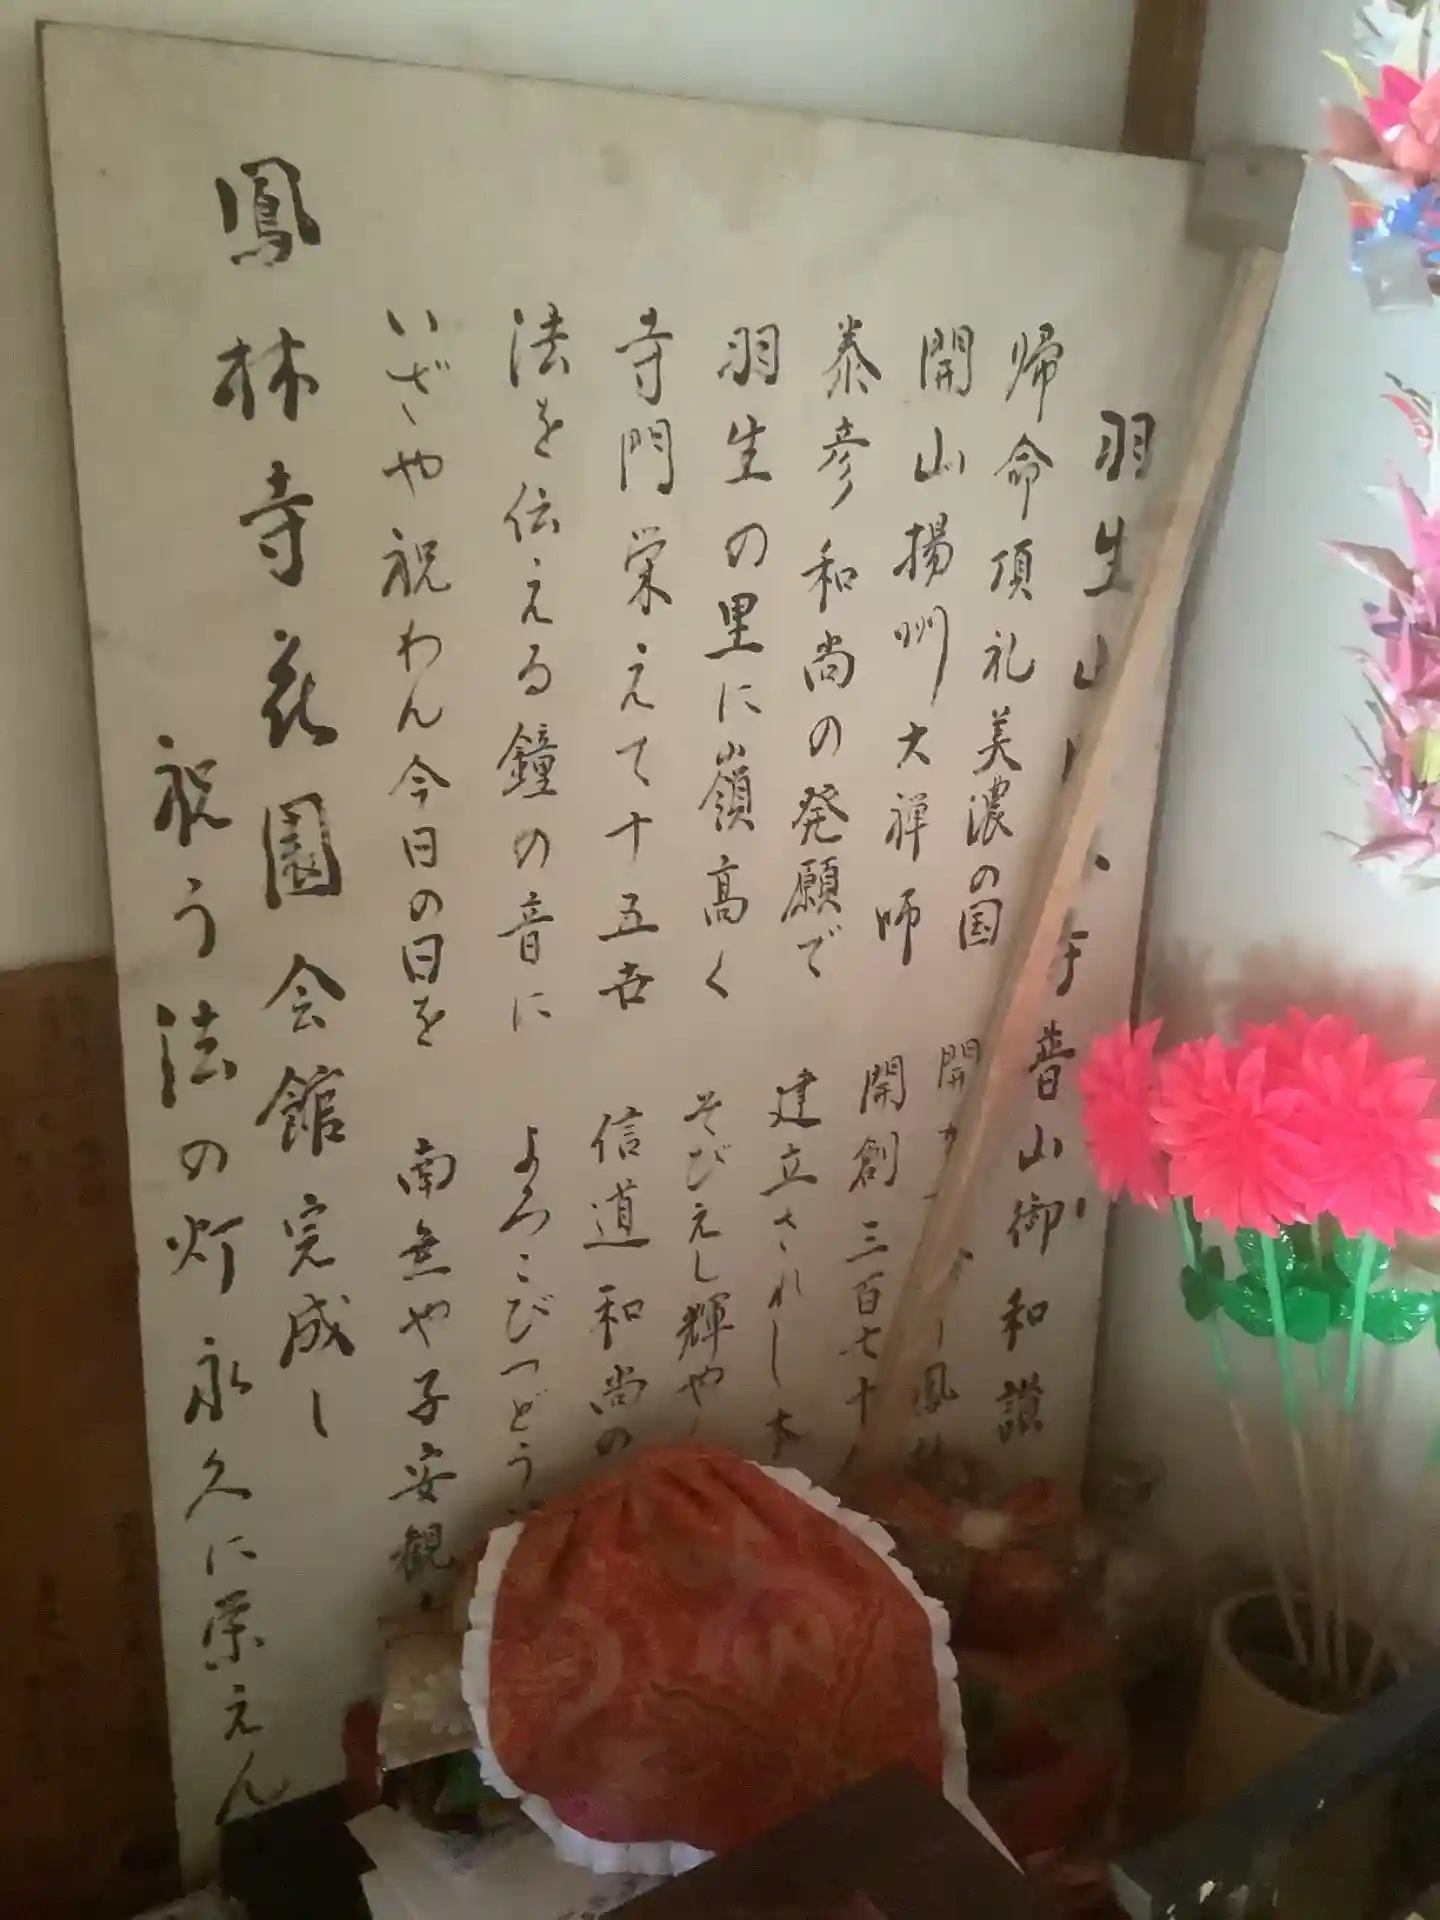 羽生山 寺普山御和讃
帰命頂礼美濃の国 開 鳳
開山揚州大禅師 開創三百七十
泰彦和尚の発願で 建立されし本
羽生の里に嶺高く そびえし輝や
寺門栄えて十五世 信道和尚の
法を伝える鐘の音に よろこびつどう
いざや祝わん今日の日を 南無や子安観
鳳林寺花園会館完成し
祝う法の灯永久に栄えん